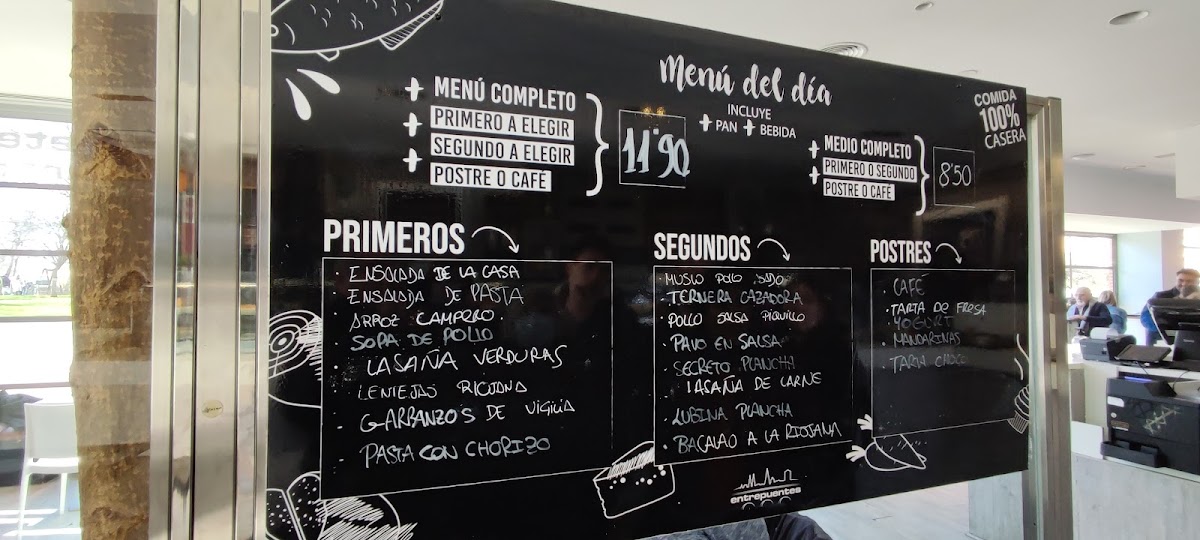 Menú del día
INCLUYE
+ PAN + BEBIDA
COMIDA
100%
CASERA
+ MENÚ COMPLETO
+ PRIMERO A ELEGIR
+ SEGUNDO A ELEGIR
POSTRE O CAFÉ
11'90
+ MEDIO COMPLETO
+ PRIMERO O SEGUNDO
+ POSTRE O CAFÉ
8'50
PRIMEROS
· ENSALADA DE LA CASA
· ENSALADA DE PASTA
· ARROZ CAMPERO.
· SOPA DE POLLO
· LASAÑA VERDURAS
· LENTEJAS RIOJANA
· GARBANZOS DE VIGILIA
· PASTA CON CHORIZO
SEGUNDOS
· MUSLO POLLO
· TERNERA CAZADORA
· POLLO SALSA PIQUILLO
· PAVO EN SALSA
· SECRETO PLANCHA
· LASAÑA DE CARNE
· LUBINA PLANCHA
· BACALAO A LA RIOJANA
POSTRES
· CAFÉ
· TARTA DE FRESA
· YOGURT
· MANDARINAS
· TARTA CHOCO
entrepuentes